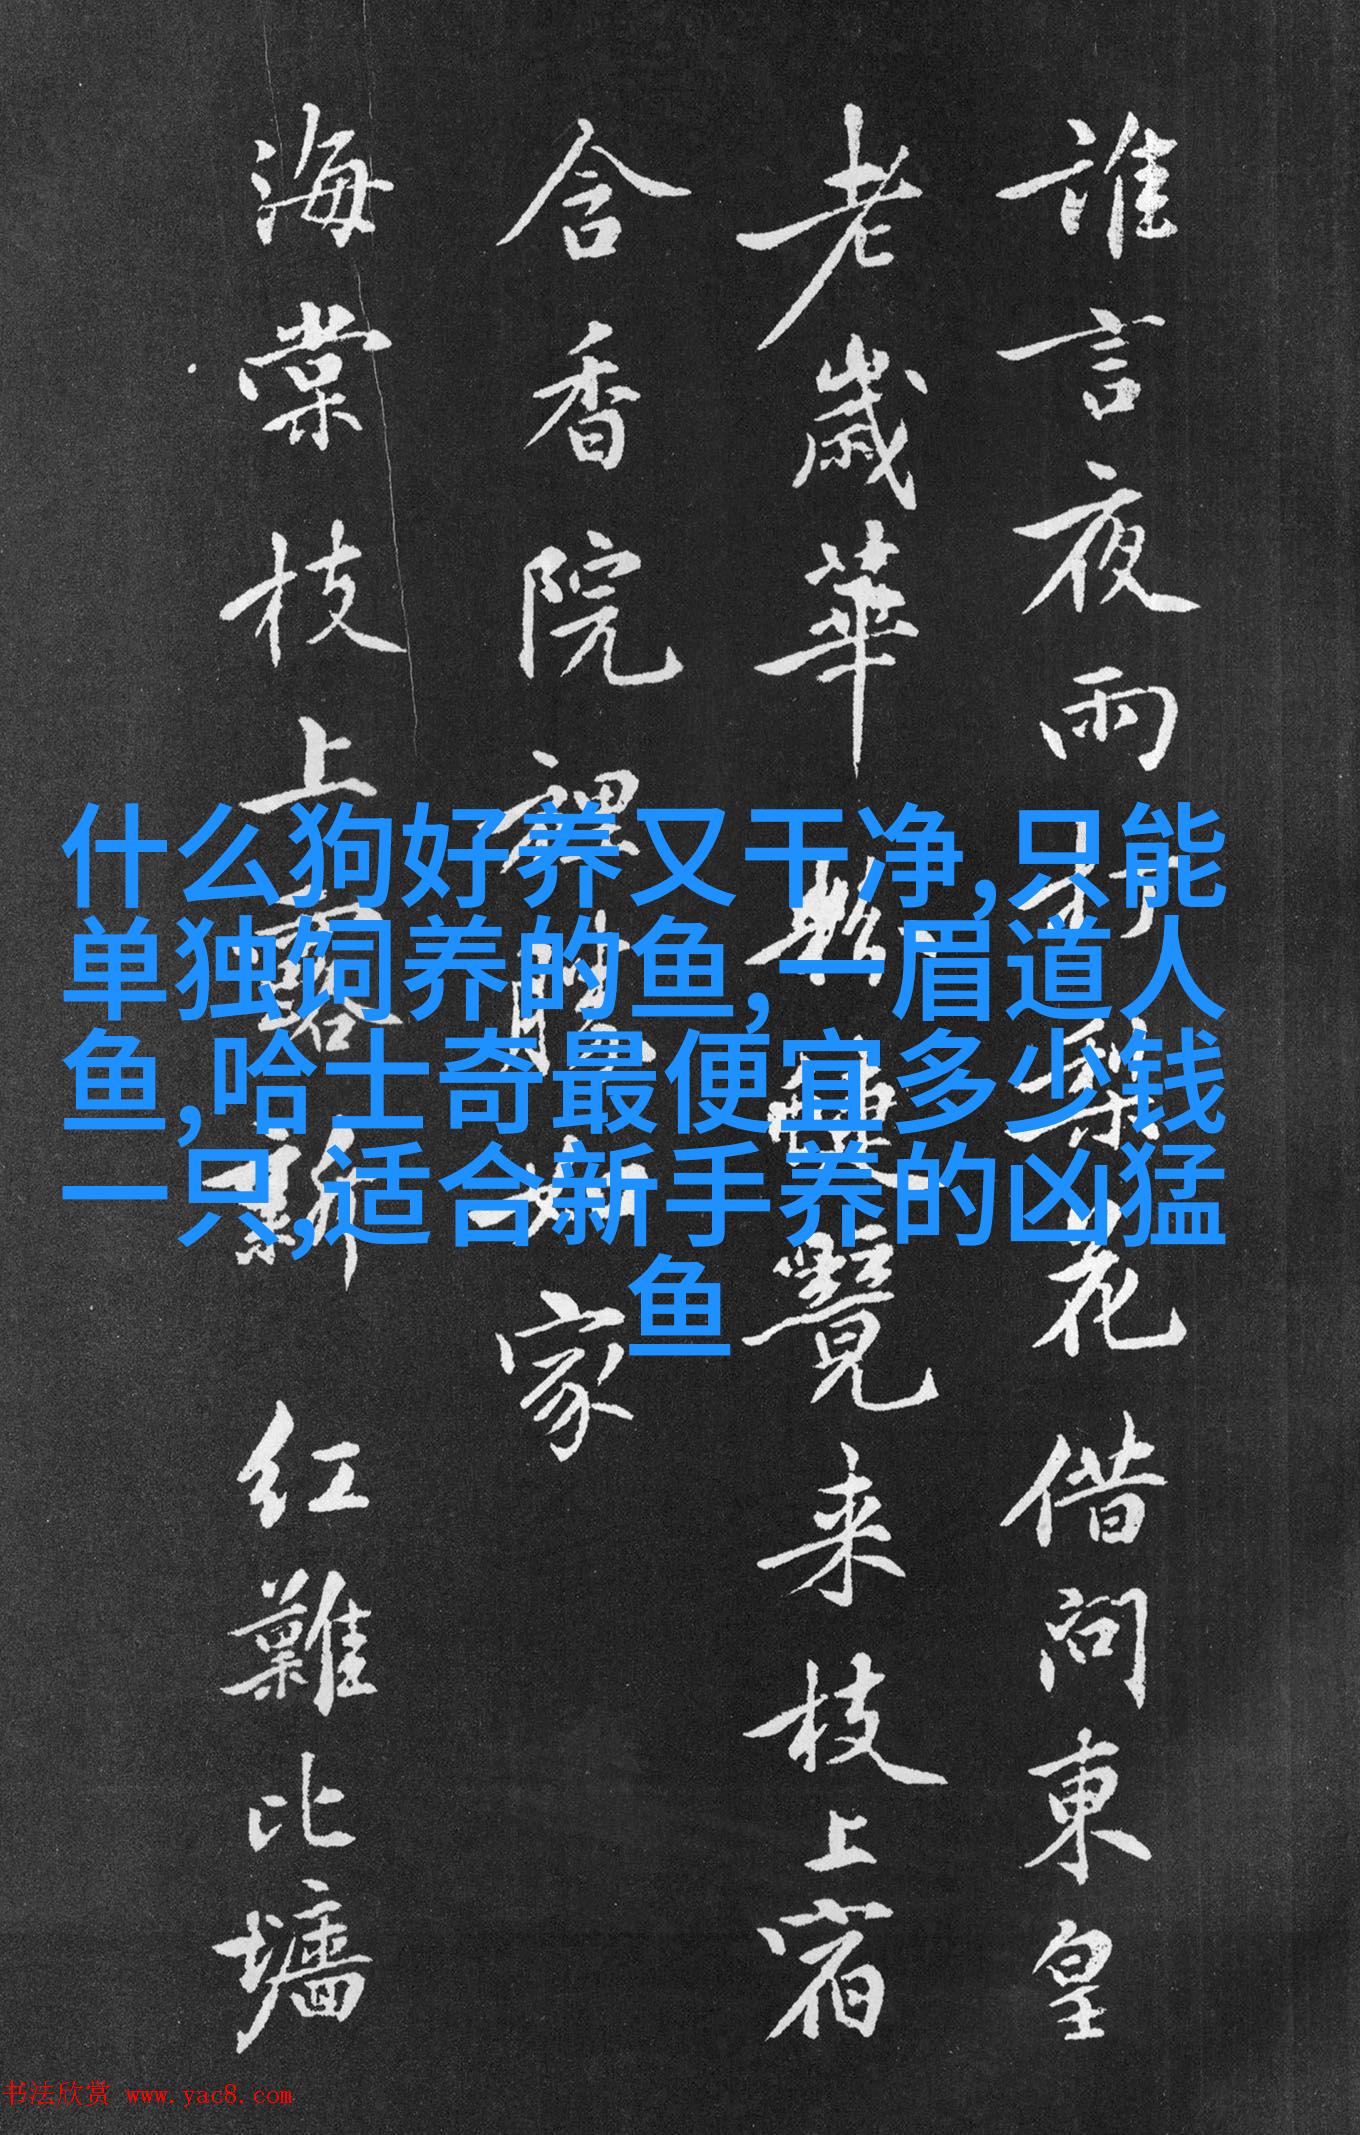 誰言夜雨打梨花借問東皇
老歲華来枝上宿
含香院裡勝家
海棠枝上露新红難比墻
什么狗好养又干净,只能
单独饲养的鱼,一眉道人
鱼,哈士奇最便宜多少钱
一只,适合新手养的凶猛
鱼
书法欣赏 www.yac8.com